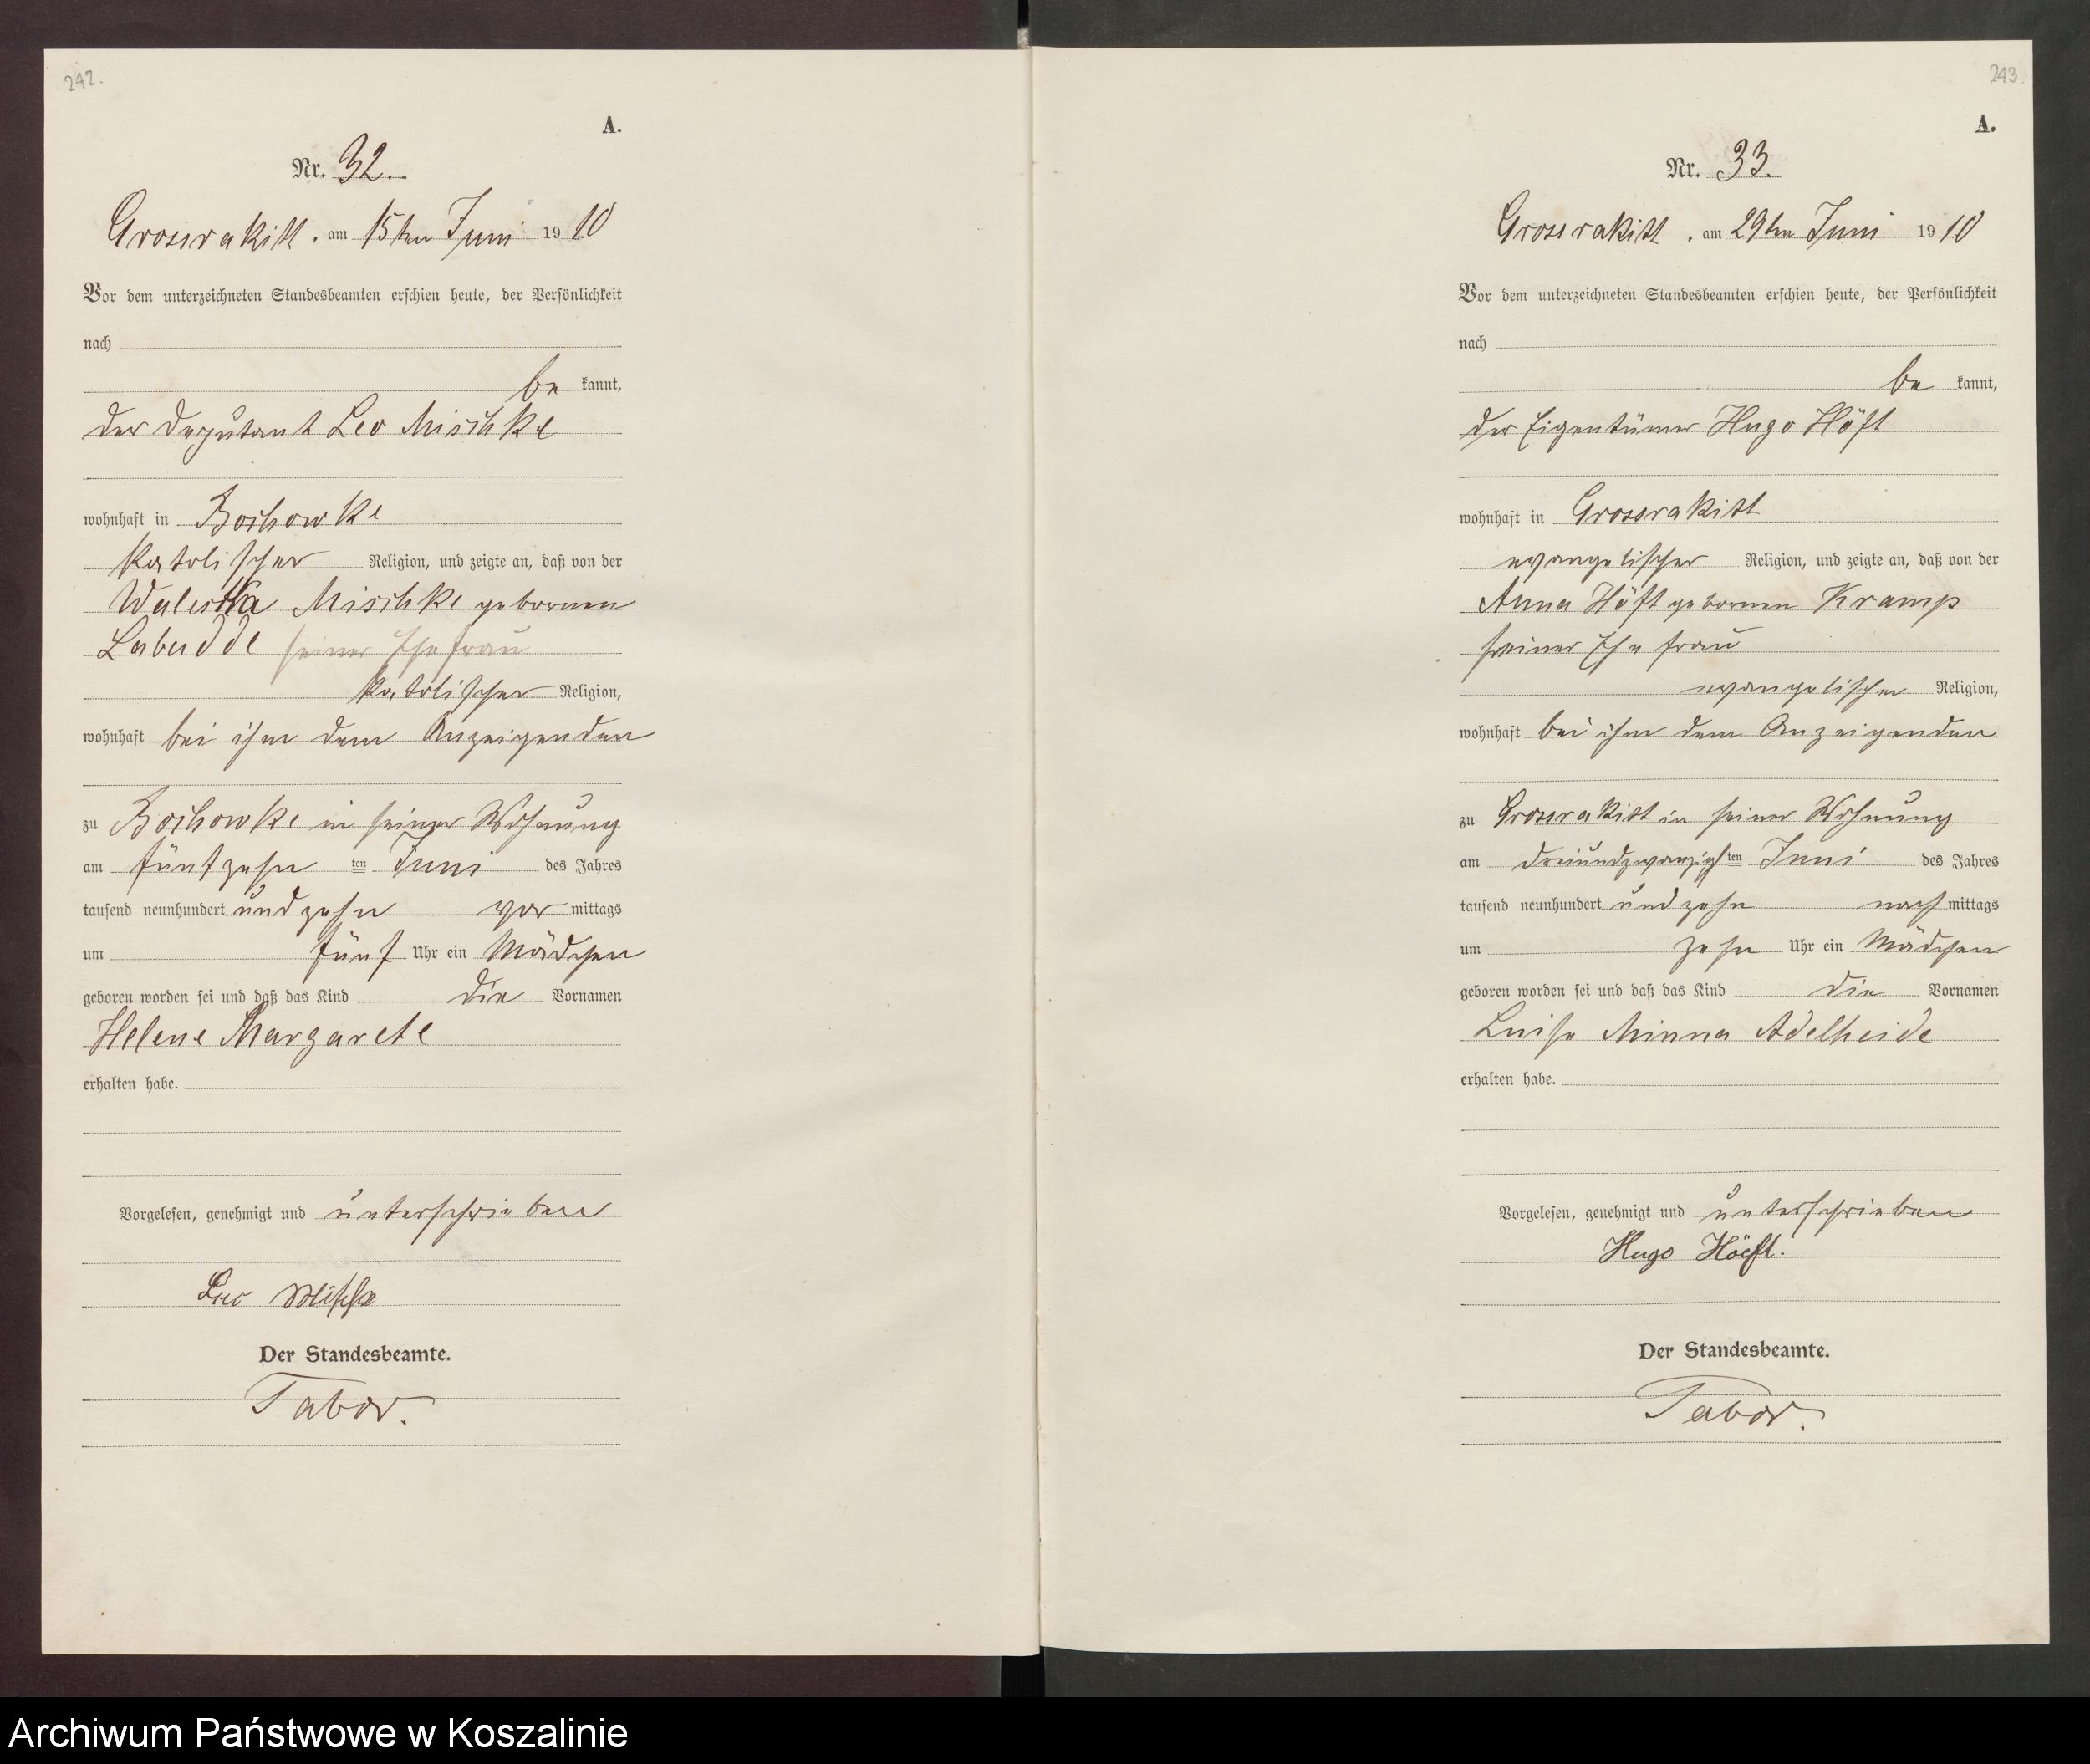 242.
A.
Nr. 32.
Grossrakitt, am 15ten Juni 1910
Vor dem unterzeichneten Standesbeamten erschien heute, der Persönlichkeit
nach
be kannt,
der Deputant Leo Mischke
wohnhaft in Bochowke
katolischer Religion, und zeigte an, daß von der
Waleska Mischke gebornen
Labudde seiner Ehefrau
katolischer Religion,
wohnhaft bei ihm dem Anzeigenden
zu Bochowke in seiner Wohnung
am fünfzehn ten Juni des Jahres
tausend neunhundert und zehn vor mittags
um fünf Uhr ein Mädchen
geboren worden sei und daß das Kind die Vornamen
Helene Margarete
erhalten habe.
Vorgelesen, genehmigt und unterschrieben
Leo Mischke
Der Standesbeamte.
Tabor.
243
A.
Nr. 33.
Grossrakitt, am 29ten Juni 1910
Vor dem unterzeichneten Standesbeamten erschien heute, der Persönlichkeit
nach
be kannt,
der Eigentümer Hugo Höft
wohnhaft in Grossrakitt
evangelischer Religion, und zeigte an, daß von der
Anna Höft gebornen Kramp
seiner Ehefrau
evangelischer Religion,
wohnhaft bei ihm dem Anzeigenden
zu Grossrakitt in seiner Wohnung
am dreiundzwanzigsten Juni des Jahres
tausend neunhundert und zehn nach mittags
um zehn Uhr ein Mädchen
geboren worden sei und daß das Kind die Vornamen
Luise Minna Adelheide
erhalten habe.
Vorgelesen, genehmigt und unterschrieben
Hugo Höeft.
Der Standesbeamte.
Tabor.
Archiwum Państwowe w Koszalinie